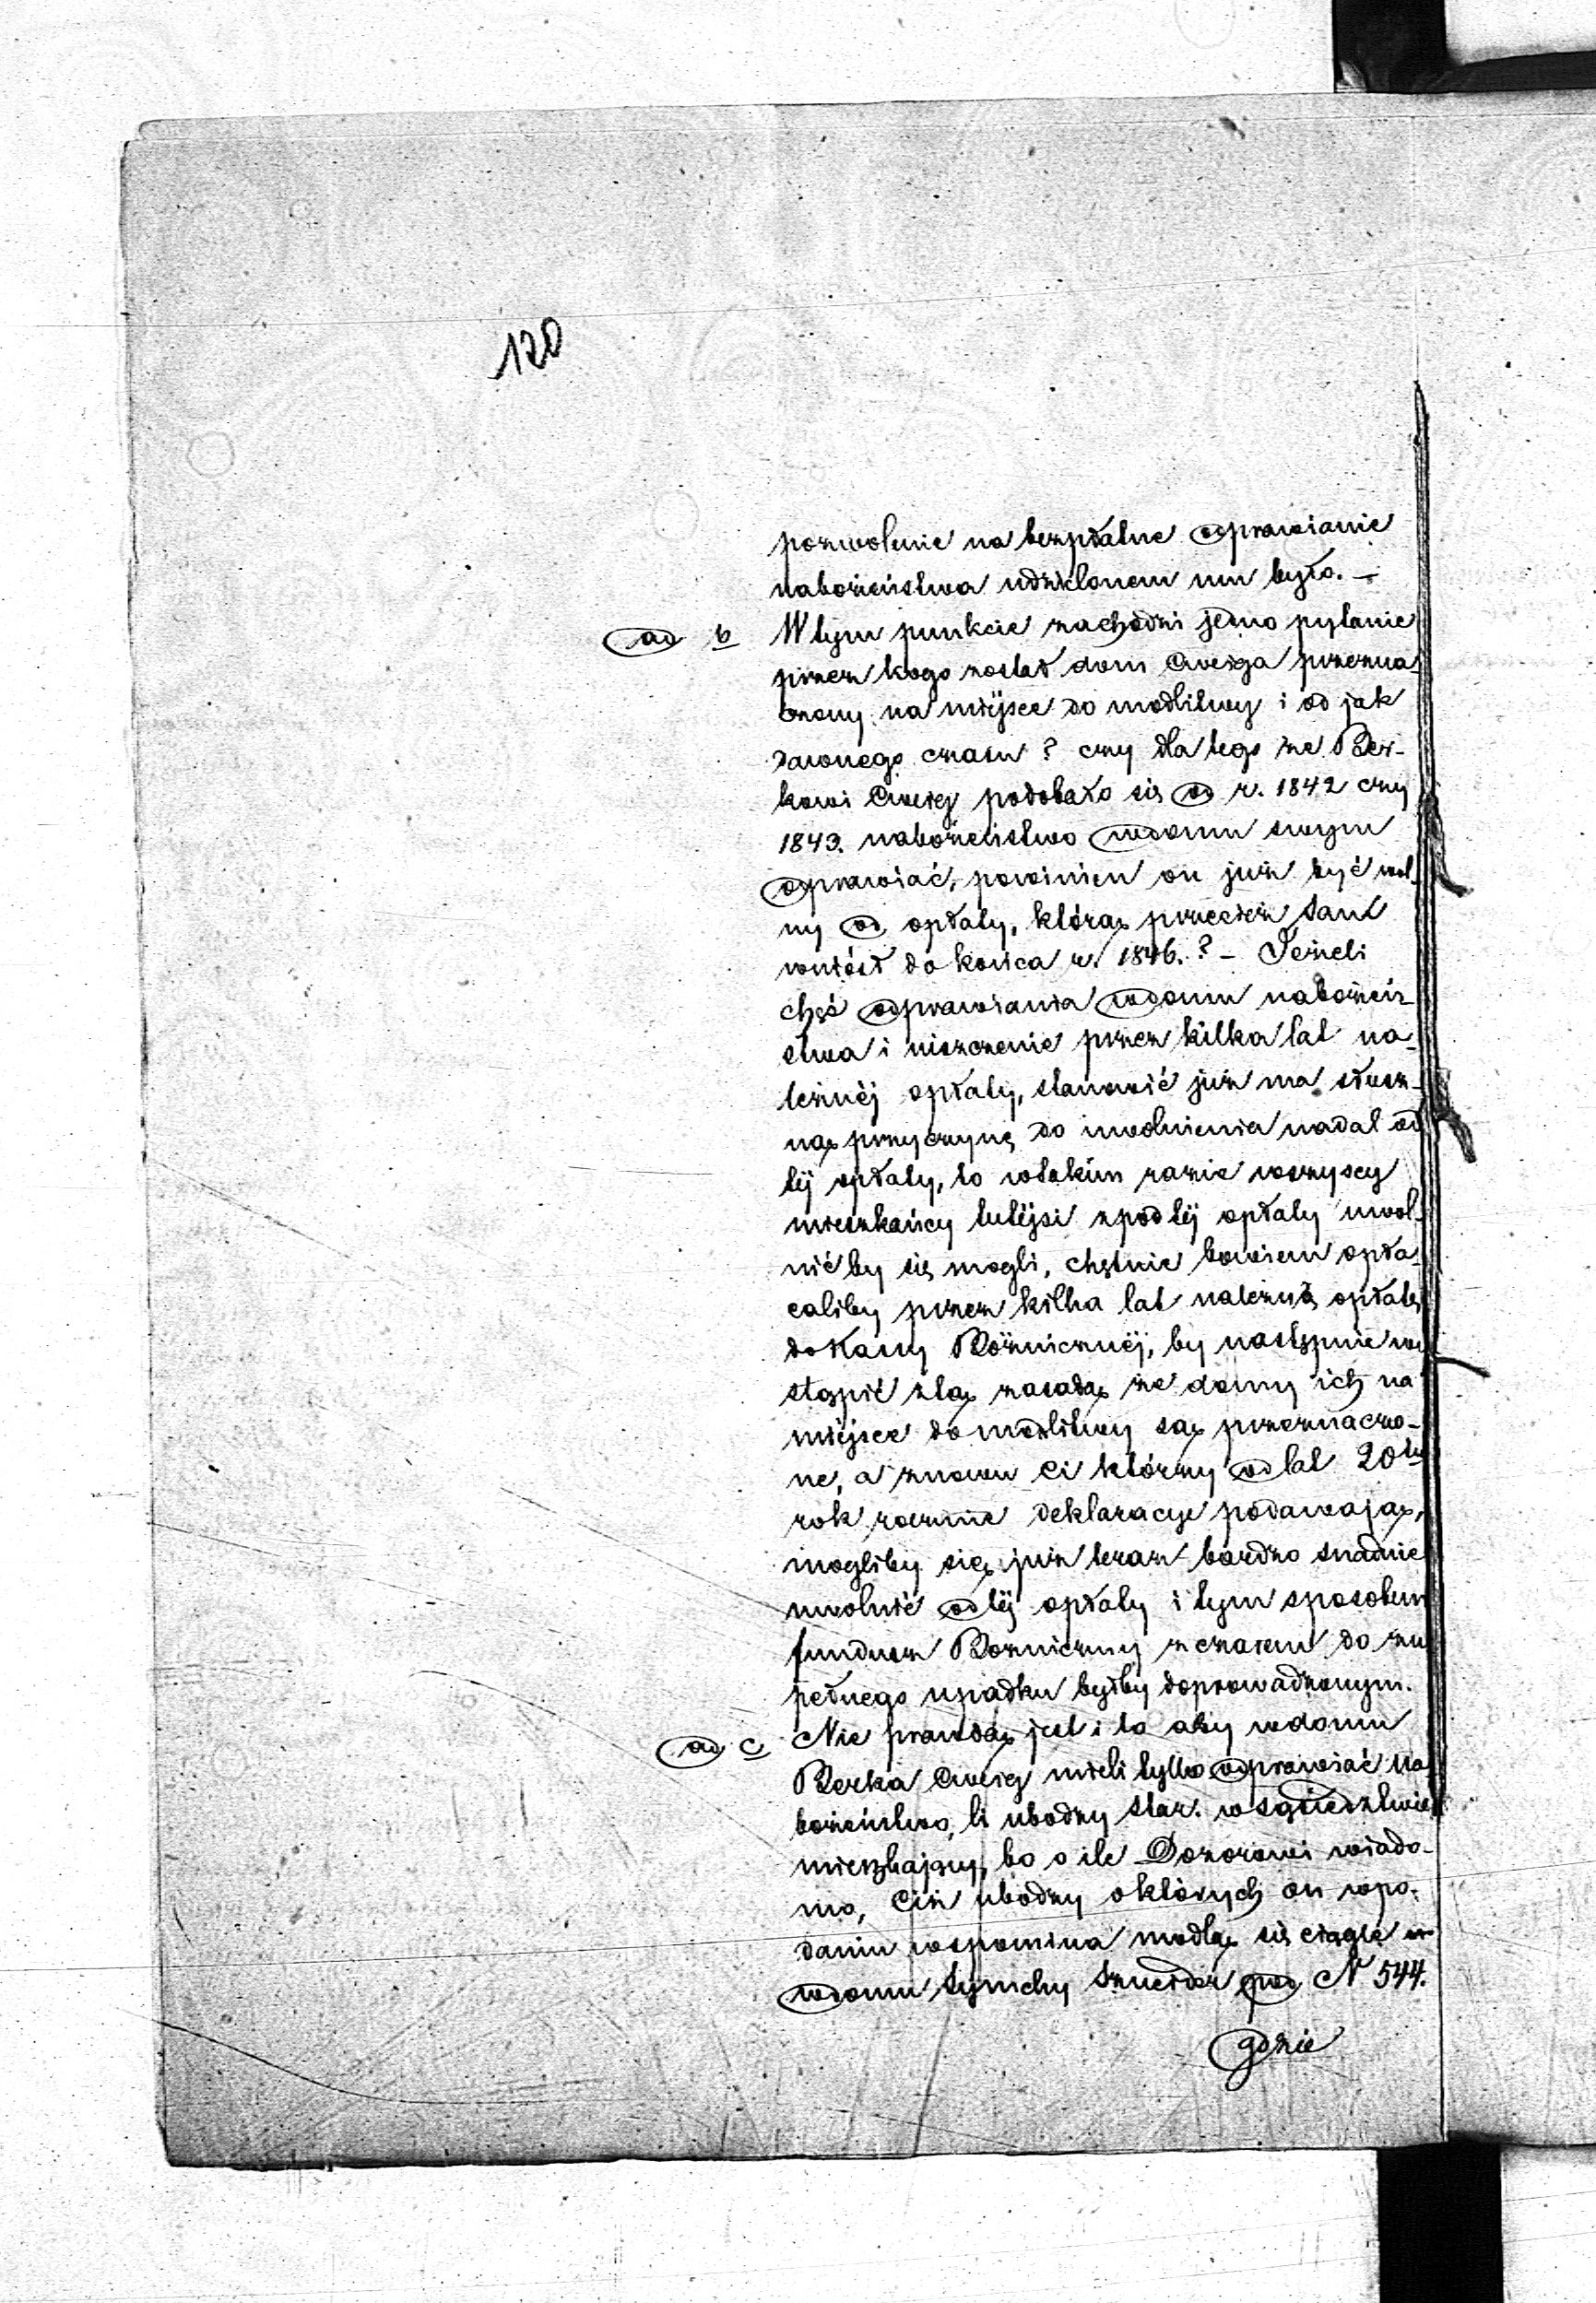 120
pozwolenie na bezpłatne odprawianie
nabożeństwa udzielonem mu było. –
ad b W tym punkcie zachodzi jedno pytanie
przez kogo został dom Cweiga przezna-
czony na miejsce do modlitwy i od jak
dawnego czasu? czy dla tego że Ber-
kowi Cweig podobało się od r. 1842 czy
1843. nabożeństwo wdomu swym
odprawiać, powinien on już być wol-
ny od opłaty, którą przecież sam
wniósł do końca r. 1846.? – Jeżeli
chęć odprawiania wdomu nabożeń-
stwa i uiszczenie przez kilka lat na-
leżnéj opłaty, stanowić już ma słusz-
ną przyczynę do uwolnienia nadal od
téj opłaty, to wtakim razie wszyscy
mieszkańcy tutéjsi zpod téj opłaty uwol-
nić by się mogli, chętnie bowiem opła-
caliby przez kilka lat należną opłatę
do Kassy Bóżnicznéj, by następnie wy
stąpić ztą zasadą że domy ich na
miéjsce do modlitwy są przeznaczo-
ne, a znowu Ci którzy od lat 20tu
rok rocznie deklaracye podawają,
mogliby się już teraz bardzo snadnie
uwolnić od téj opłaty i tym sposobem
fundusz Bożniczny zczasem do zu
pełnego upadku byłby doprowadzonym.
ad c Nie prawdą jest i to aby wdomu
Berka Cweig mieli tylko odprawiać na-
bożeństwo, li ubodzy star. wsąsiedztwie
mieszkający, bo o ile Dozorowi wiado-
mo, Ciż ubodzy októrych on wpo-
daniu wspomina modlą się ciągle
wdomu Symchy Szneider pod N 544.
gdzie